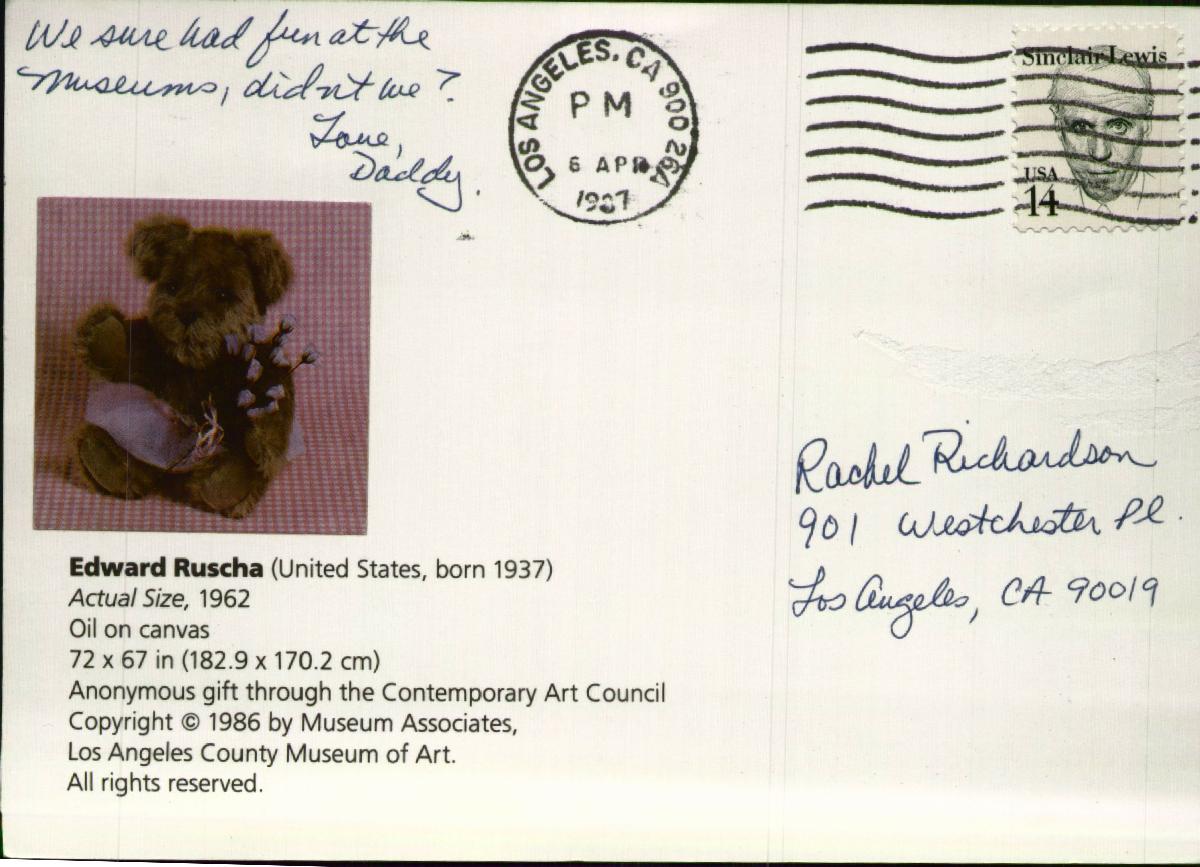 We sure had fun at the
Museums, didn't we?
Love,
Daddy.
LOS ANGELES, CA 900 26A
PM
6 APR
1987
Sinclair Lewis
USA
14
Rachel Richardson
901 Westchester Pl.
Los Angeles, CA 90019
Edward Ruscha (United States, born 1937)
Actual Size, 1962
Oil on canvas
72 x 67 in (182.9 x 170.2 cm)
Anonymous gift through the Contemporary Art Council
Copyright © 1986 by Museum Associates,
Los Angeles County Museum of Art.
All rights reserved.